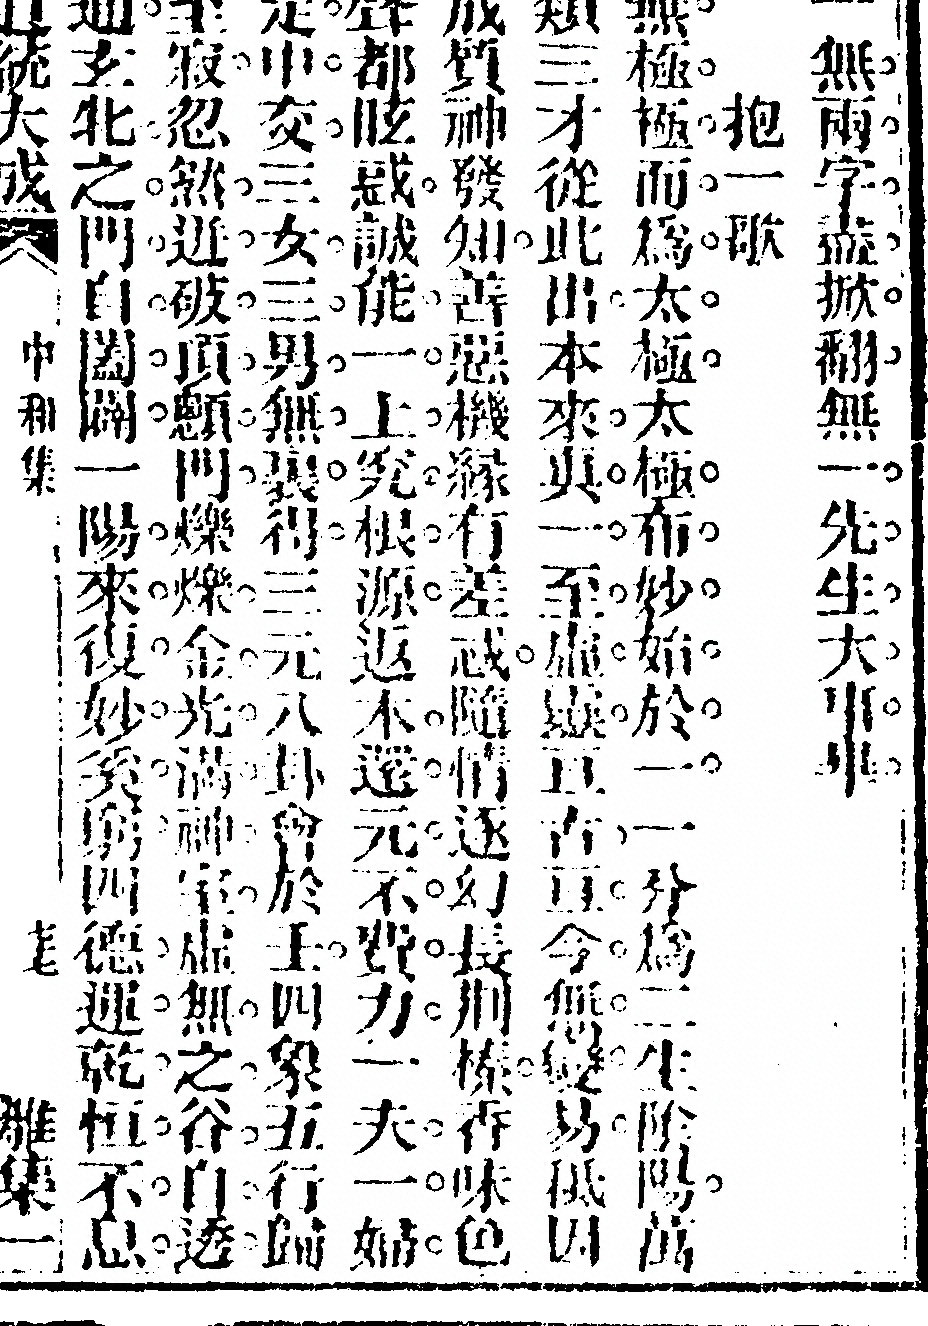 一無兩字盡掀翻無一先生大事畢
抱一歌
無極極而爲太極太極布妙始於一一分爲二生陰陽萬
類三才從此出本來眞一至虛靈亘古亘今無變易祗因
成質神發知善惡機緣有差忒隨情逐幻長荆榛香味色
聲都眩惑誠能一上究根源返本還元不費力一夫一婦
定中交三女三男無裏得三元八卦會於壬四象五行歸
至寂忽然迸破頂顖門爍爍金光滿神室虛無之谷自透
通玄牝之門自闔闢一陽來復妙奚窮四德運乾恒不息
道統大成 中和集 雜集一